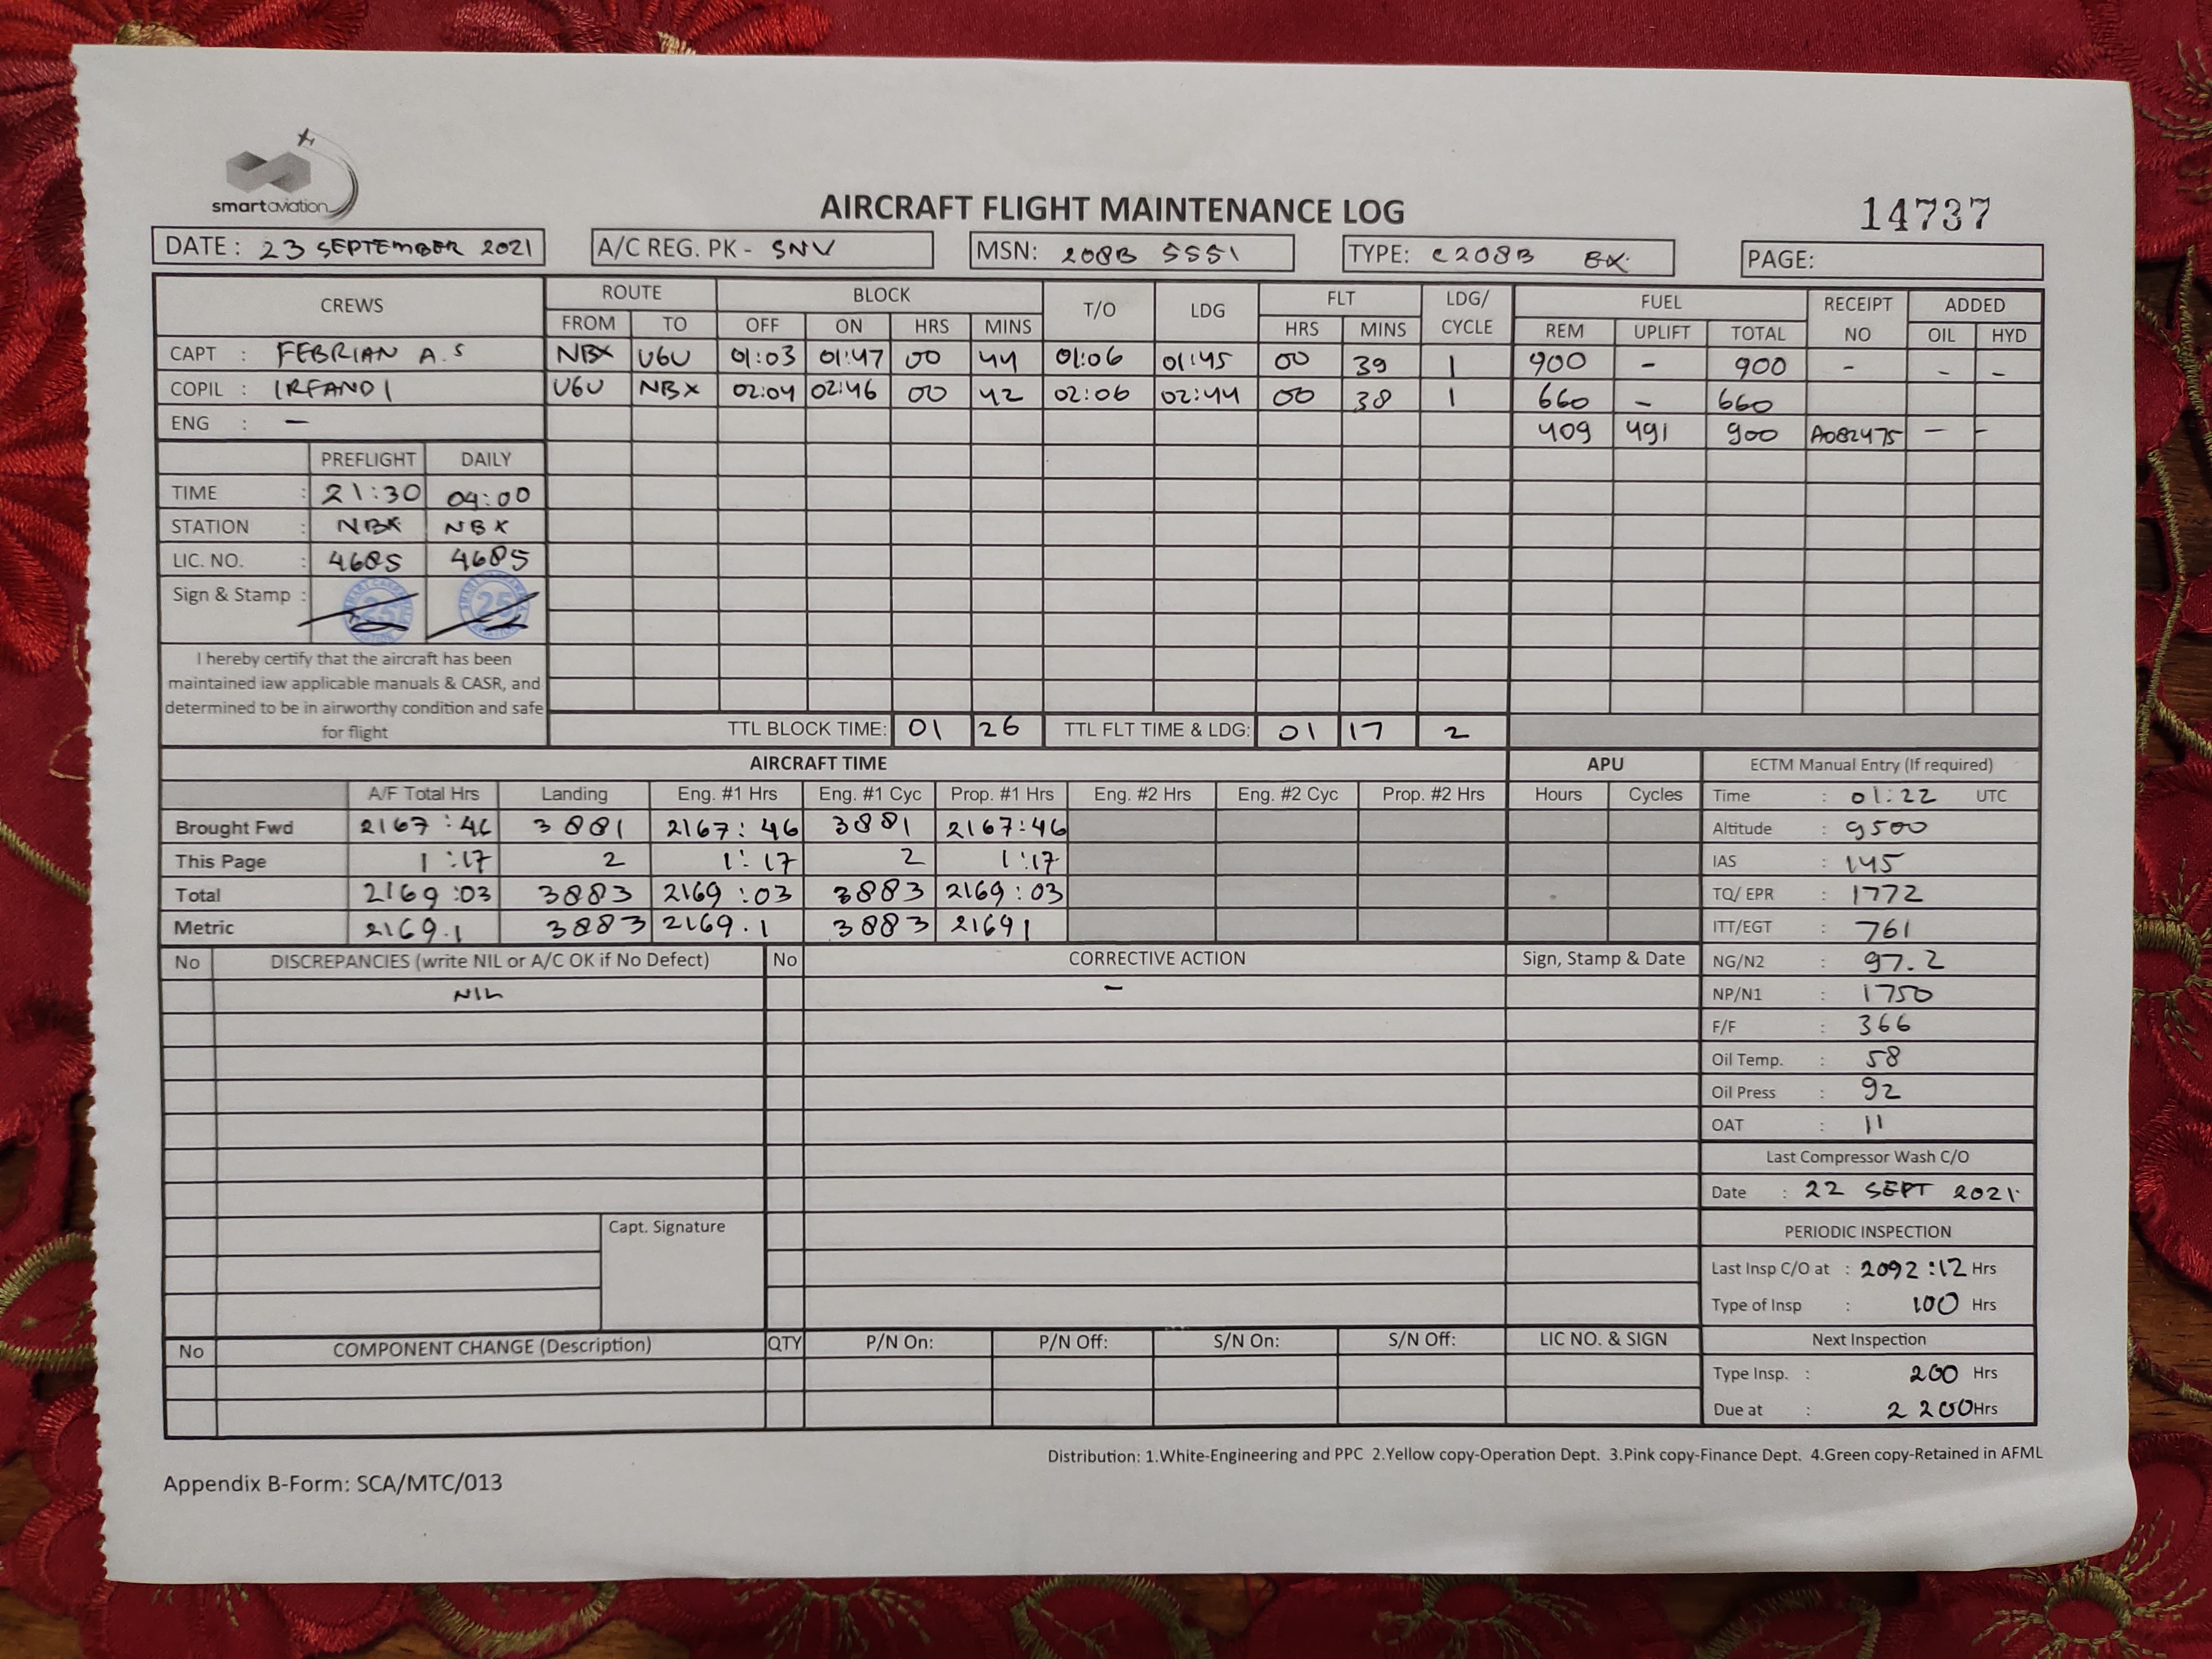 smartaviation
AIRCRAFT FLIGHT MAINTENANCE LOG
14737
DATE : 23 SEPTEMBER 2021 A/C REG. PK - SNV MSN: 208B 5551 TYPE: C208B EX PAGE:
CREWS ROUTE BLOCK T/O LDG FLT LDG/ CYCLE FUEL RECEIPT NO ADDED
FROM TO OFF ON HRS MINS HRS MINS REM UPLIFT TOTAL OIL HYD
CAPT : FEBRIAN A.S NBX UGU 01:03 01:47 00 44 01:06 01:45 00 39 1 900 - 900 - - -
COPIL : IRFANDI UGU NBX 02:04 02:46 00 42 02:06 02:44 00 38 1 660 - 660
ENG : - 409 491 900 A082475 - -
PREFLIGHT DAILY
TIME : 21:30 04:00
STATION : NBX NBX
LIC. NO. : 4685 4685
Sign & Stamp : 25 25
I hereby certify that the aircraft has been
maintained iaw applicable manuals & CASR, and
determined to be in airworthy condition and safe
for flight
TTL BLOCK TIME: 01 26 TTL FLT TIME & LDG: 01 17 2
AIRCRAFT TIME APU
A/F Total Hrs Landing Eng. #1 Hrs Eng. #1 Cyc Prop. #1 Hrs Eng. #2 Hrs Eng. #2 Cyc Prop. #2 Hrs Hours Cycles
Brought Fwd 2167:46 3881 2167:46 3881 2167:46
This Page 1:17 2 1:17 2 1:17
Total 2169:03 3883 2169:03 3883 2169:03
Metric 2169.1 3883 2169.1 3883 21691
No DISCREPANCIES (write NIL or A/C OK if No Defect) No CORRECTIVE ACTION Sign, Stamp & Date
NIL -
Capt. Signature
No COMPONENT CHANGE (Description) QTY P/N On: P/N Off: S/N On: S/N Off: LIC NO. & SIGN
ECTM Manual Entry (If required)
Time : 01:22 UTC
Altitude : 9500
IAS : 145
TQ/ EPR : 1772
ITT/EGT : 761
NG/N2 : 97.2
NP/N1 : 1750
F/F : 366
Oil Temp. : 58
Oil Press : 92
OAT : 11
Last Compressor Wash C/O
Date : 22 SEPT 2021
PERIODIC INSPECTION
Last Insp C/O at : 2092:12 Hrs
Type of Insp : 100 Hrs
Next Inspection
Type Insp. : 200 Hrs
Due at : 2200 Hrs
Distribution: 1.White-Engineering and PPC 2.Yellow copy-Operation Dept. 3.Pink copy-Finance Dept. 4.Green copy-Retained in AFML
Appendix B-Form: SCA/MTC/013